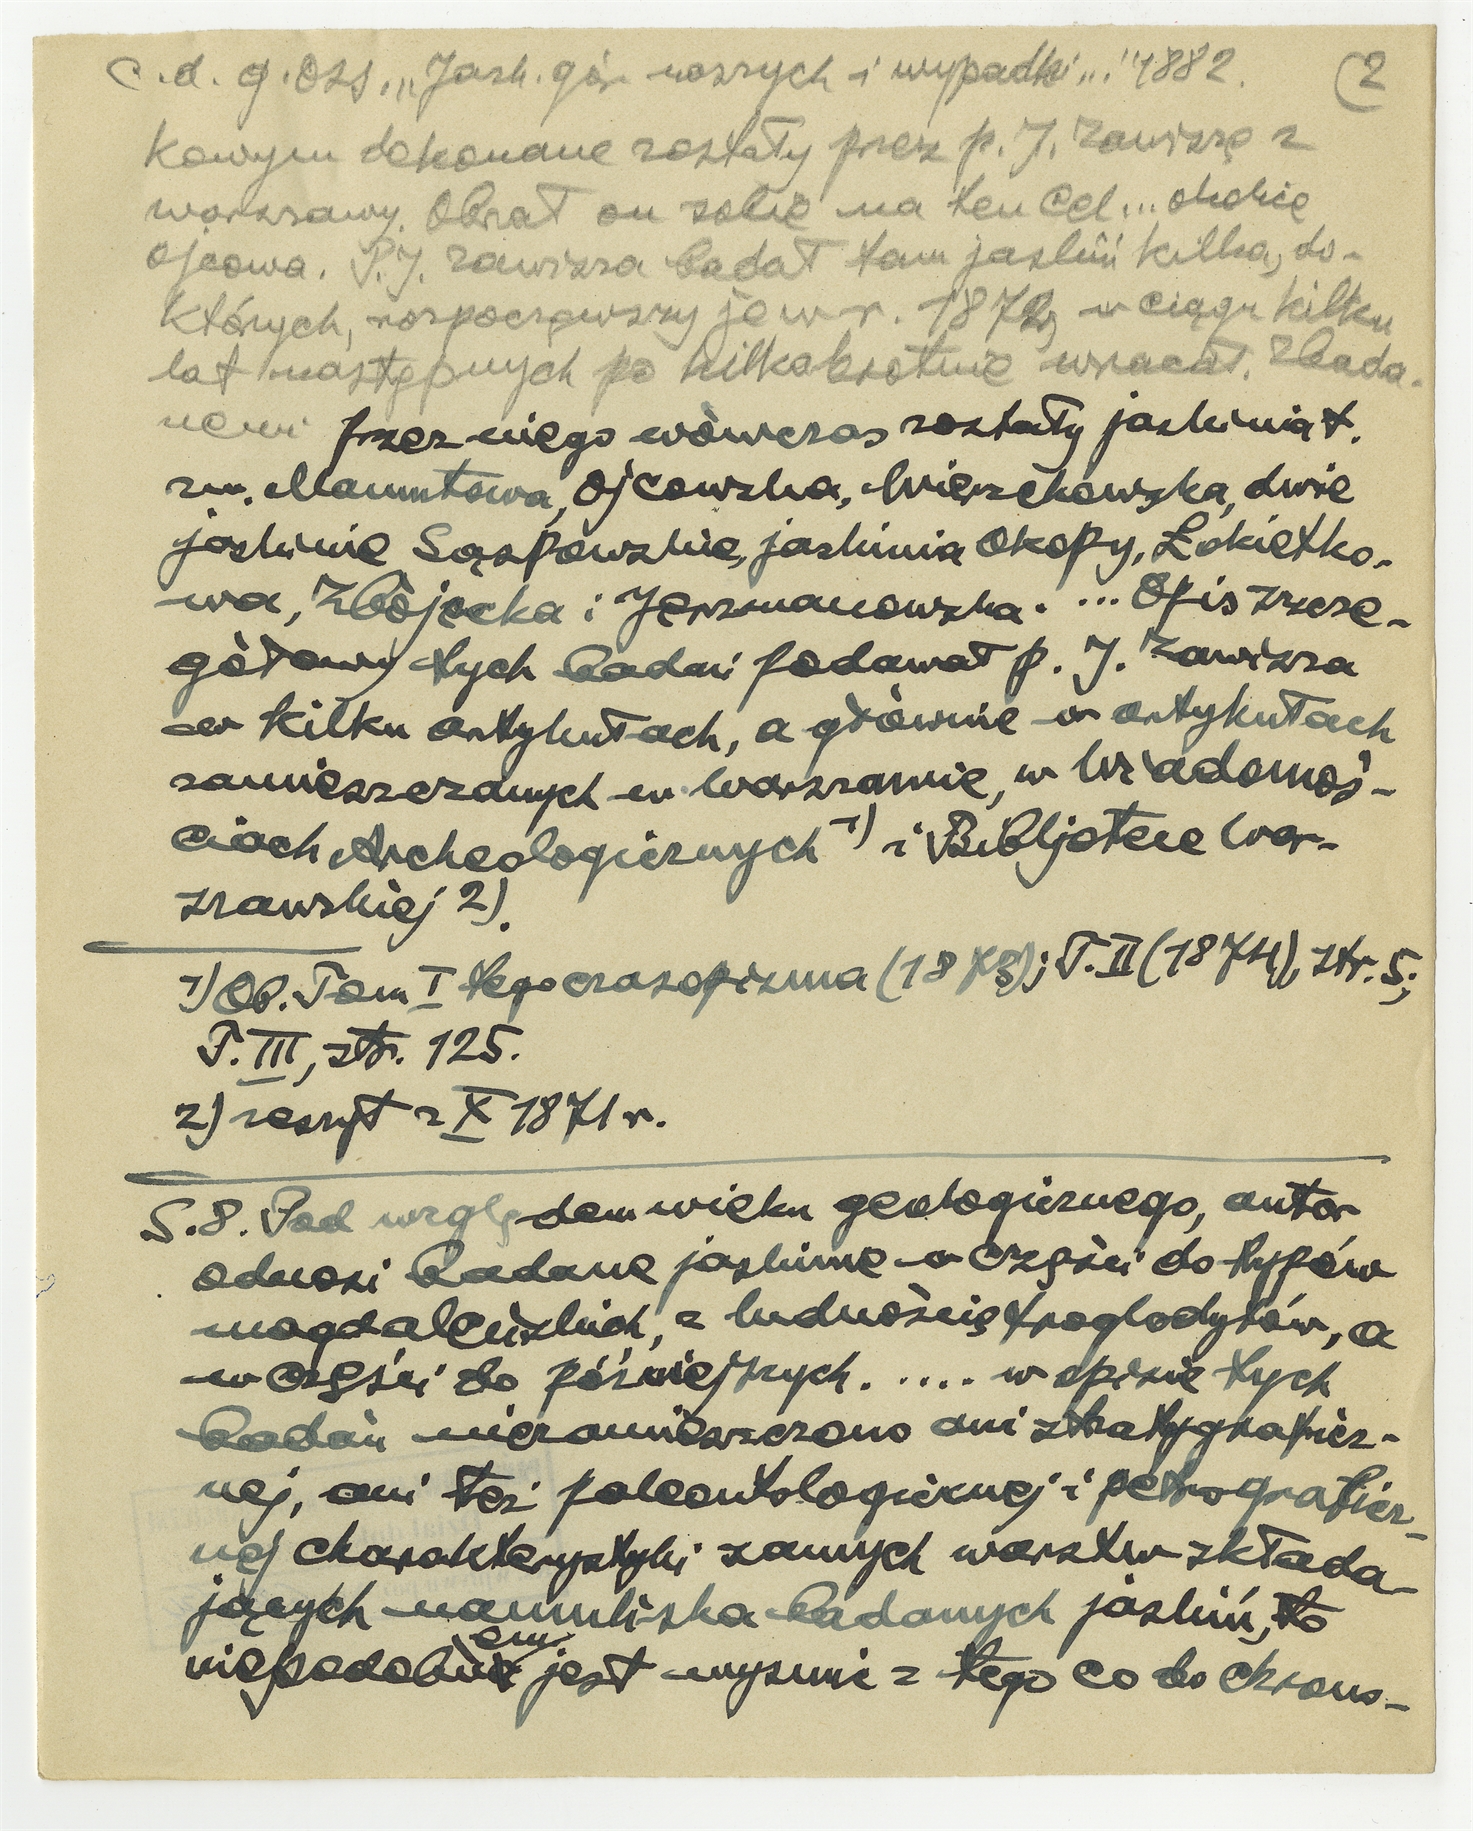 c.d. g. Oss. „Jask. gór naszych i wypadki..." 1882. (2
kowym dokonane zostały przez p. J. Zawiszę z
Warszawy. Obrał on sobie na ten cel... okolice
Ojcowa. P. J. Zawisza badał tam jaskiń kilka, do
których, rozpocząwszy je w r. 1872, w ciągu kilku
lat następnych po kilkakrotnie wracał. Zbada-
nemi przez niego wówczas zostały jaskinia t.
zw. Mamutowa, Ojcowska, Wierzchowska, dwie
jaskinie Sąspowskie, jaskinia Okopy, Łokietko-
wa, Zbójecka i Jerzmanowska. ... Opis szcze-
gółowy tych badań podawał p. J. Zawisza
w kilku artykułach, a głównie w artykułach
zamieszczanych w Warszawie, w Wiadomoś-
ciach Archeologicznych 1) i Bibljotece War-
szawskiej 2).
1) Ob. Tom I tego czasopisma (1873); T. II (1874), str. 5;
T. III, str. 125.
2) zeszyt z X 1871 r.
S. 8. Pod względem wieku geologicznego, autor
odnosi badane jaskinie w części do typów
magdaleńskich, z ludnością troglodytów, a
w części do późniejszych. .... w opisie tych
badań niezamieszczono ani stratygraficz-
nej, ani też paleontologicznej i petrograficz-
nej charakterystyki samych warstw składa-
jących namuliska badanych jaskiń, to
niepodobnem jest wysnuć z tego co do chrono-